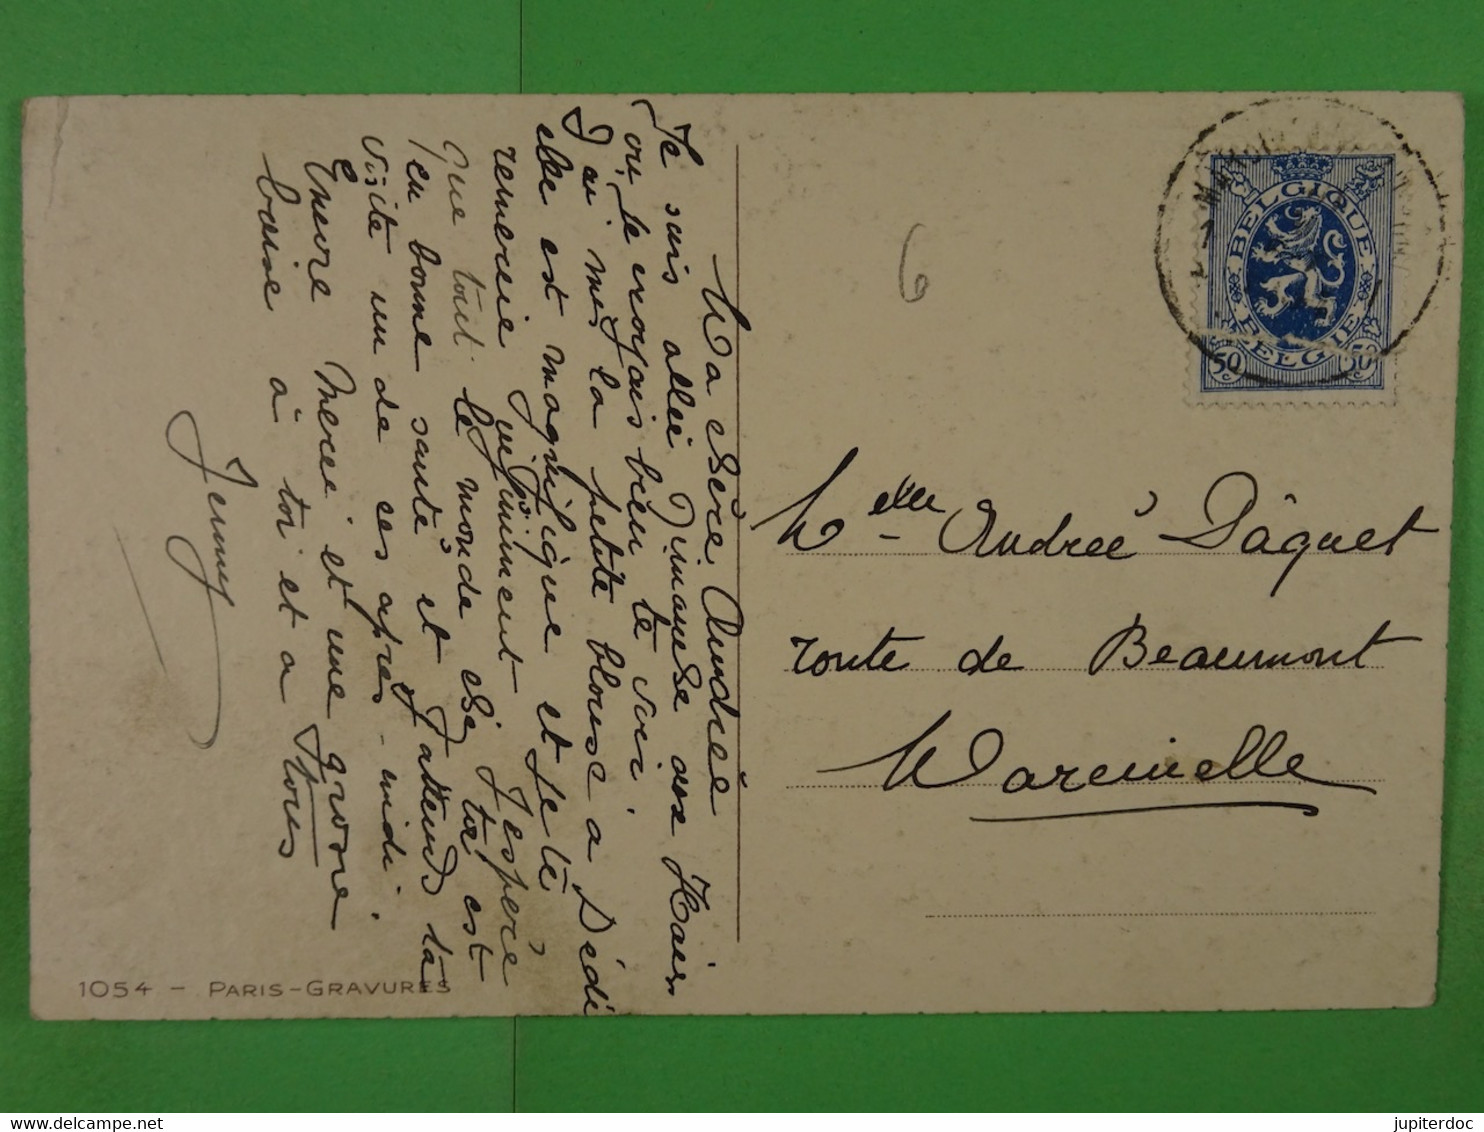 Ma chère Andrée
Je suis allée Dimanche aux Haies
où je croyais bien te voir.
J'ai mis la petite blouse a Dédé
elle est magnifique et je te
remercie infiniment J'espère
que tout le monde chez toi est
en bonne santé et j'attends ta
visite un de ces après-midi.
Encore Merci et une grosse
baise à toi et a tous
Jenny
6
BELGIQUE
BELGIE
50 c
50 c
Melle Andrée Pâquet
route de Beaumont
Marcinelle
1054 - PARIS-GRAVURES
jupiterdoc
delcampe.net